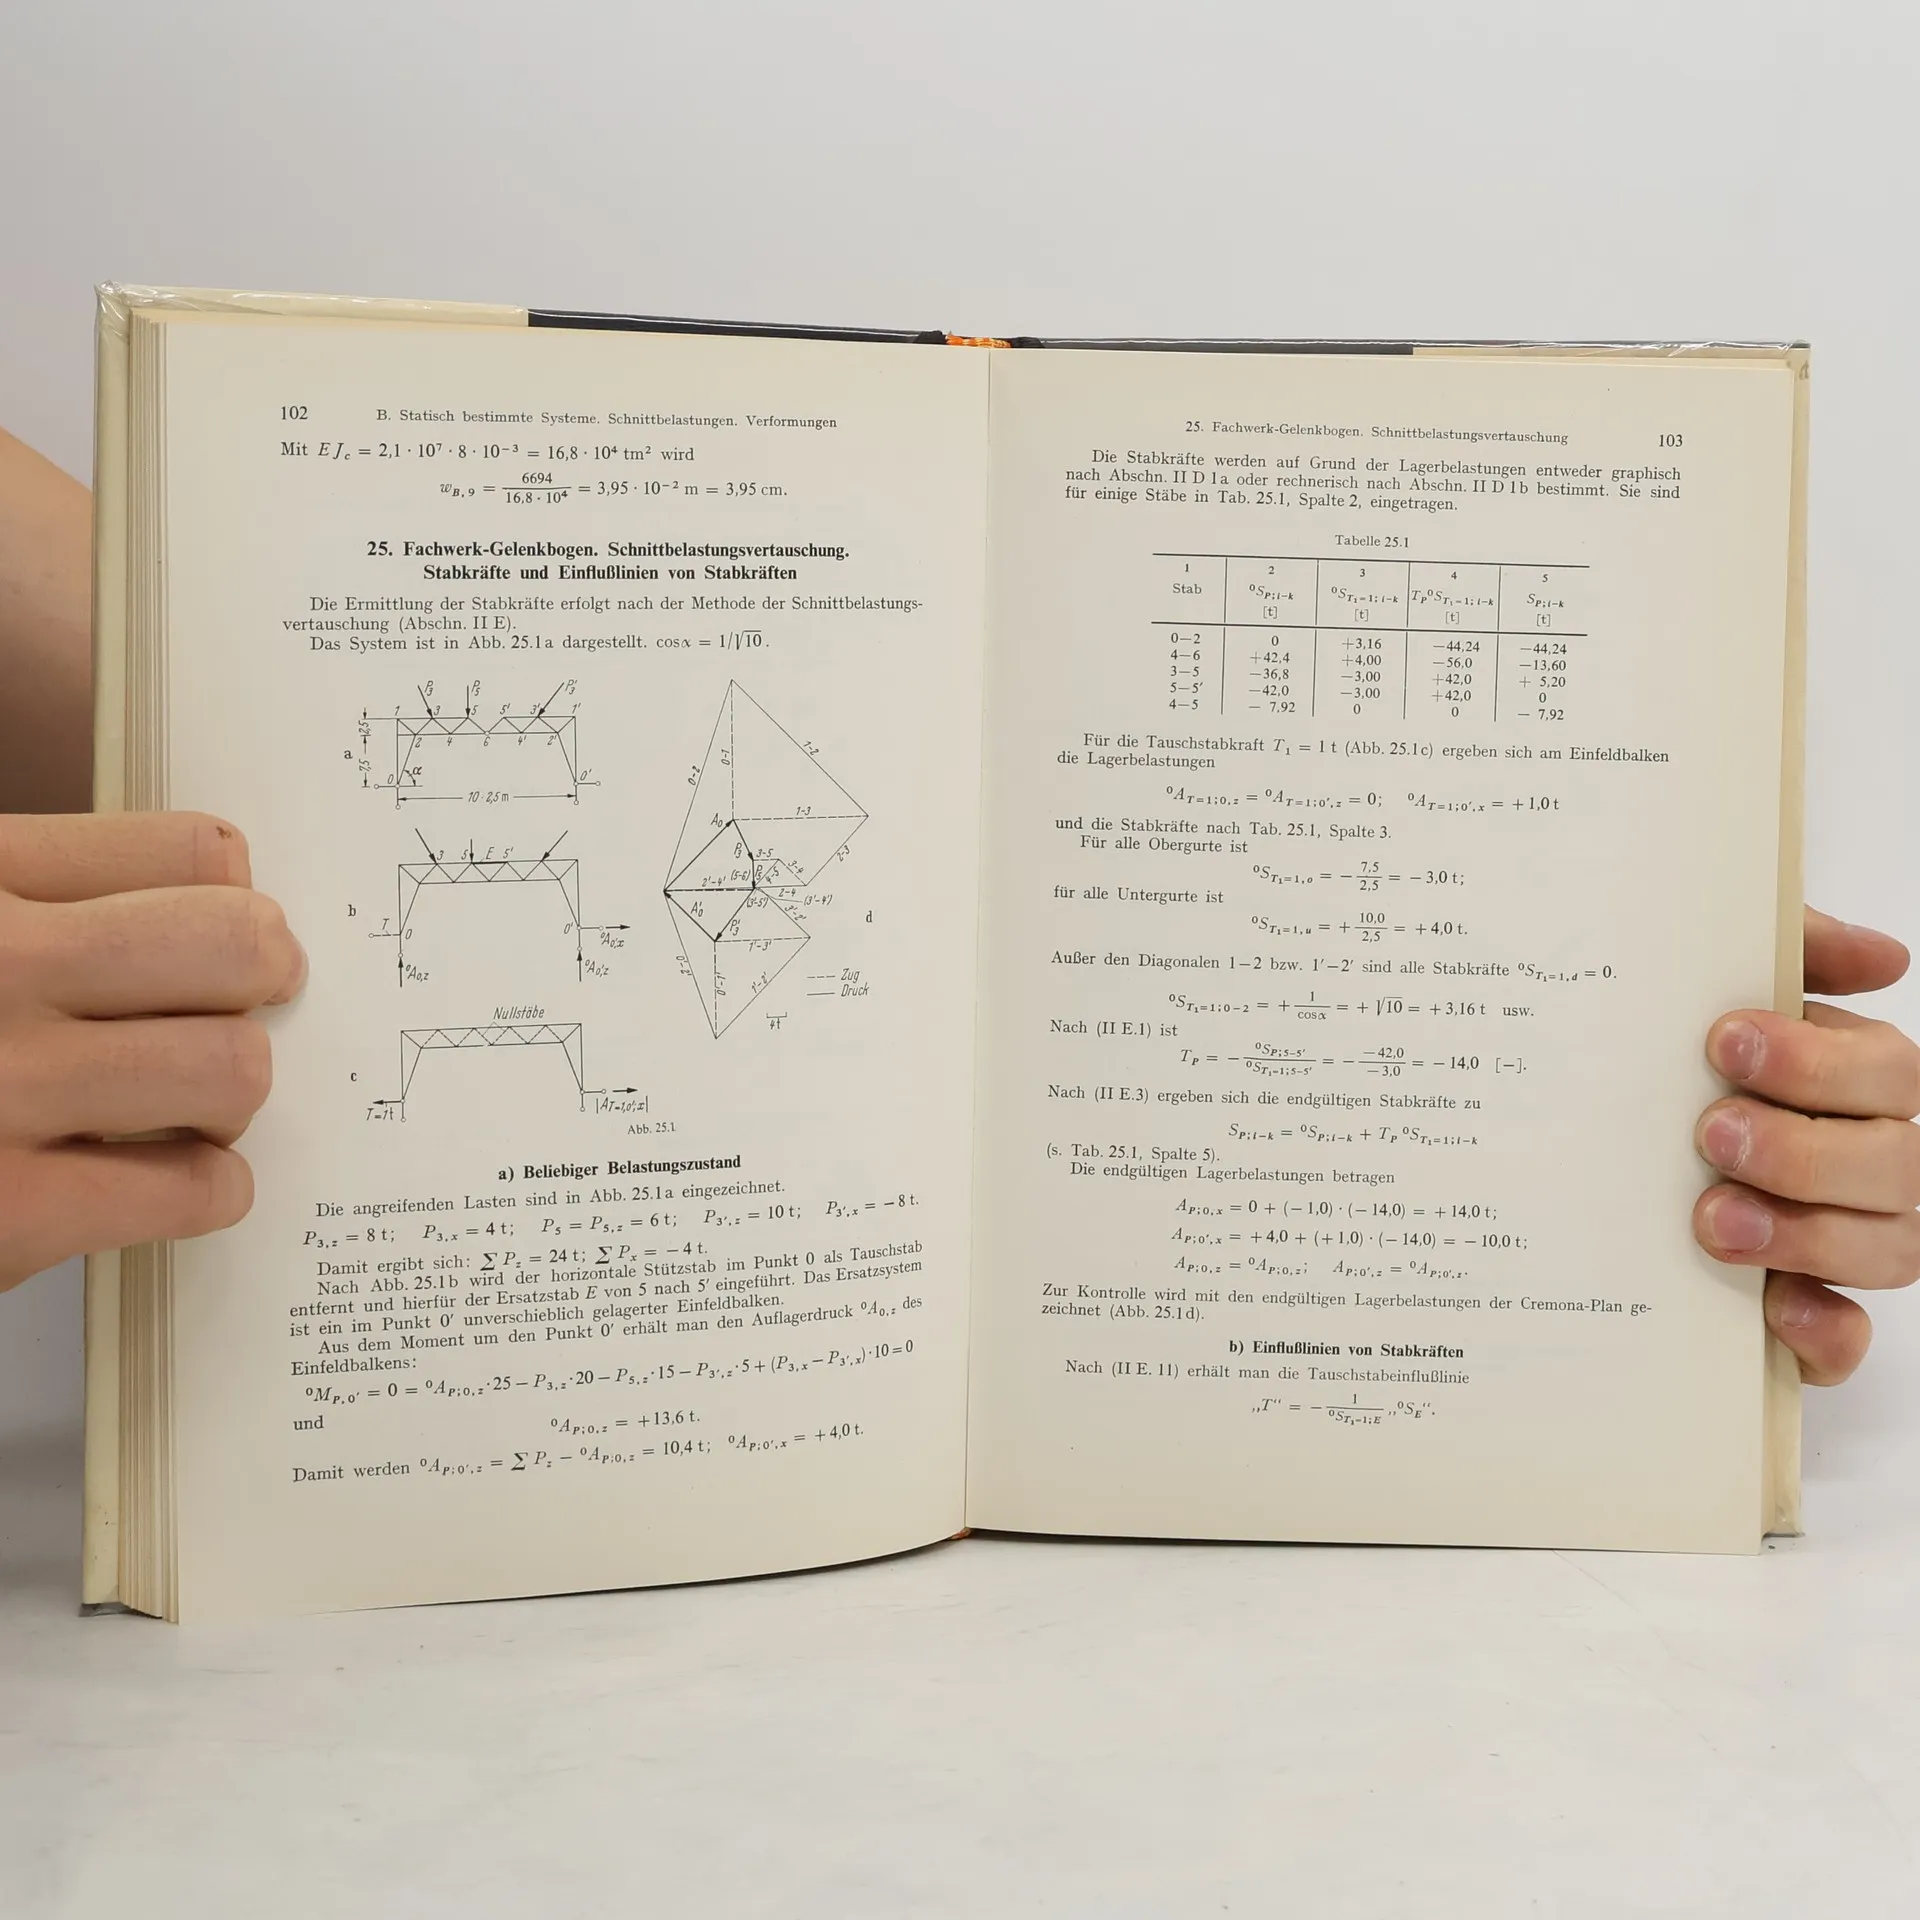 102 B. Statisch bestimmte Systeme. Schnittbelastungen. Verformungen
Mit E J_c = 2,1 · 10⁷ · 8 · 10⁻³ = 16,8 · 10⁴ tm² wird
w_{B,9} = 6694 / 16,8 · 10⁴ = 3,95 · 10⁻² m = 3,95 cm.
25. Fachwerk-Gelenkbogen. Schnittbelastungsvertauschung.
Stabkräfte und Einflußlinien von Stabkräften
Die Ermittlung der Stabkräfte erfolgt nach der Methode der Schnittbelastungs-
vertauschung (Abschn. II E).
Das System ist in Abb. 25.1a dargestellt. cosα = 1/√10.
P₃ P₅ P₃′
1 3 5 5′ 3′ 1′
2 4 6 4′ 2′
2,5
7,5
a
0 α 0′
10·2,5 m
3 5 E 5′
b
T 0 0′ ⁰A_{0′,x}
⁰A_{0,z} ⁰A_{0′,z}
Nullstäbe
c
T=1t |A_{T=1,0′,x}|
0-2 0-1 1-2
A₀ 1-3
P₃ 3-5 3-4 2-3
2′-4′ (5-6) P₅ 2-4
A₀′ (3′-5′) (3′-4′)
P₃′ 3′-2′
1′-3′
0′-2′ 1′-0′ 1′-2′
d
--- Zug
— Druck
4t
Abb. 25.1
a) Beliebiger Belastungszustand
Die angreifenden Lasten sind in Abb. 25.1a eingezeichnet.
P_{3,z} = 8 t; P_{3,x} = 4 t; P₅ = P_{5,z} = 6 t; P_{3′,z} = 10 t; P_{3′,x} = − 8 t.
Damit ergibt sich: ∑ P_z = 24 t; ∑ P_x = − 4 t.
Nach Abb. 25.1b wird der horizontale Stützstab im Punkt 0 als Tauschstab
entfernt und hierfür der Ersatzstab E von 5 nach 5′ eingeführt. Das Ersatzsystem
ist ein im Punkt 0′ unverschieblich gelagerter Einfeldbalken.
Aus dem Moment um den Punkt 0′ erhält man den Auflagerdruck ⁰A_{0,z} des
Einfeldbalkens:
⁰M_{P,0′} = 0 = ⁰A_{P;0,z}·25 − P_{3,z}·20 − P_{5,z}·15 − P_{3′,z}·5 + (P_{3,x} − P_{3′,x})·10 = 0
und
⁰A_{P;0,z} = +13,6 t.
Damit werden ⁰A_{P;0′,z} = ∑ P_z − ⁰A_{P;0,z} = 10,4 t; ⁰A_{P;0′,x} = +4,0 t.
25. Fachwerk-Gelenkbogen. Schnittbelastungsvertauschung 103
Die Stabkräfte werden auf Grund der Lagerbelastungen entweder graphisch
nach Abschn. II D 1a oder rechnerisch nach Abschn. II D 1b bestimmt. Sie sind
für einige Stäbe in Tab. 25.1, Spalte 2, eingetragen.
Tabelle 25.1
1 2 3 4 5
Stab ⁰S_{P;i−k} ⁰S_{T₁=1;i−k} T_P⁰S_{T₁=1;i−k} S_{P;i−k}
[t] [t] [t] [t]
0−2 0 +3,16 −44,24 −44,24
4−6 +42,4 +4,00 −56,0 −13,60
3−5 −36,8 −3,00 +42,0 + 5,20
5−5′ −42,0 −3,00 +42,0 0
4−5 − 7,92 0 0 − 7,92
Für die Tauschstabkraft T₁ = 1 t (Abb. 25.1c) ergeben sich am Einfeldbalken
die Lagerbelastungen
⁰A_{T=1;0,z} = ⁰A_{T=1;0′,z} = 0; ⁰A_{T=1;0′,x} = +1,0 t
und die Stabkräfte nach Tab. 25.1, Spalte 3.
Für alle Obergurte ist
⁰S_{T₁=1,o} = − 7,5 / 2,5 = − 3,0 t;
für alle Untergurte ist
⁰S_{T₁=1,u} = + 10,0 / 2,5 = + 4,0 t.
Außer den Diagonalen 1−2 bzw. 1′−2′ sind alle Stabkräfte ⁰S_{T₁=1,d} = 0.
⁰S_{T₁=1;0−2} = + 1 / cosα = + √10 = + 3,16 t usw.
Nach (II E.1) ist
T_P = − ⁰S_{P;5−5′} / ⁰S_{T₁=1;5−5′} = − −42,0 / −3,0 = − 14,0 [−].
Nach (II E.3) ergeben sich die endgültigen Stabkräfte zu
S_{P;i−k} = ⁰S_{P;i−k} + T_P ⁰S_{T₁=1;i−k}
(s. Tab. 25.1, Spalte 5).
Die endgültigen Lagerbelastungen betragen
A_{P;0,x} = 0 + (− 1,0) · (− 14,0) = + 14,0 t;
A_{P;0′,x} = + 4,0 + (+ 1,0) · (− 14,0) = − 10,0 t;
A_{P;0,z} = ⁰A_{P;0,z}; A_{P;0′,z} = ⁰A_{P;0′,z}.
Zur Kontrolle wird mit den endgültigen Lagerbelastungen der Cremona-Plan ge-
zeichnet (Abb. 25.1d).
b) Einflußlinien von Stabkräften
Nach (II E. 11) erhält man die Tauschstabeinflußlinie
„T“ = − 1 / ⁰S_{T₁=1;E} „⁰S_E“.